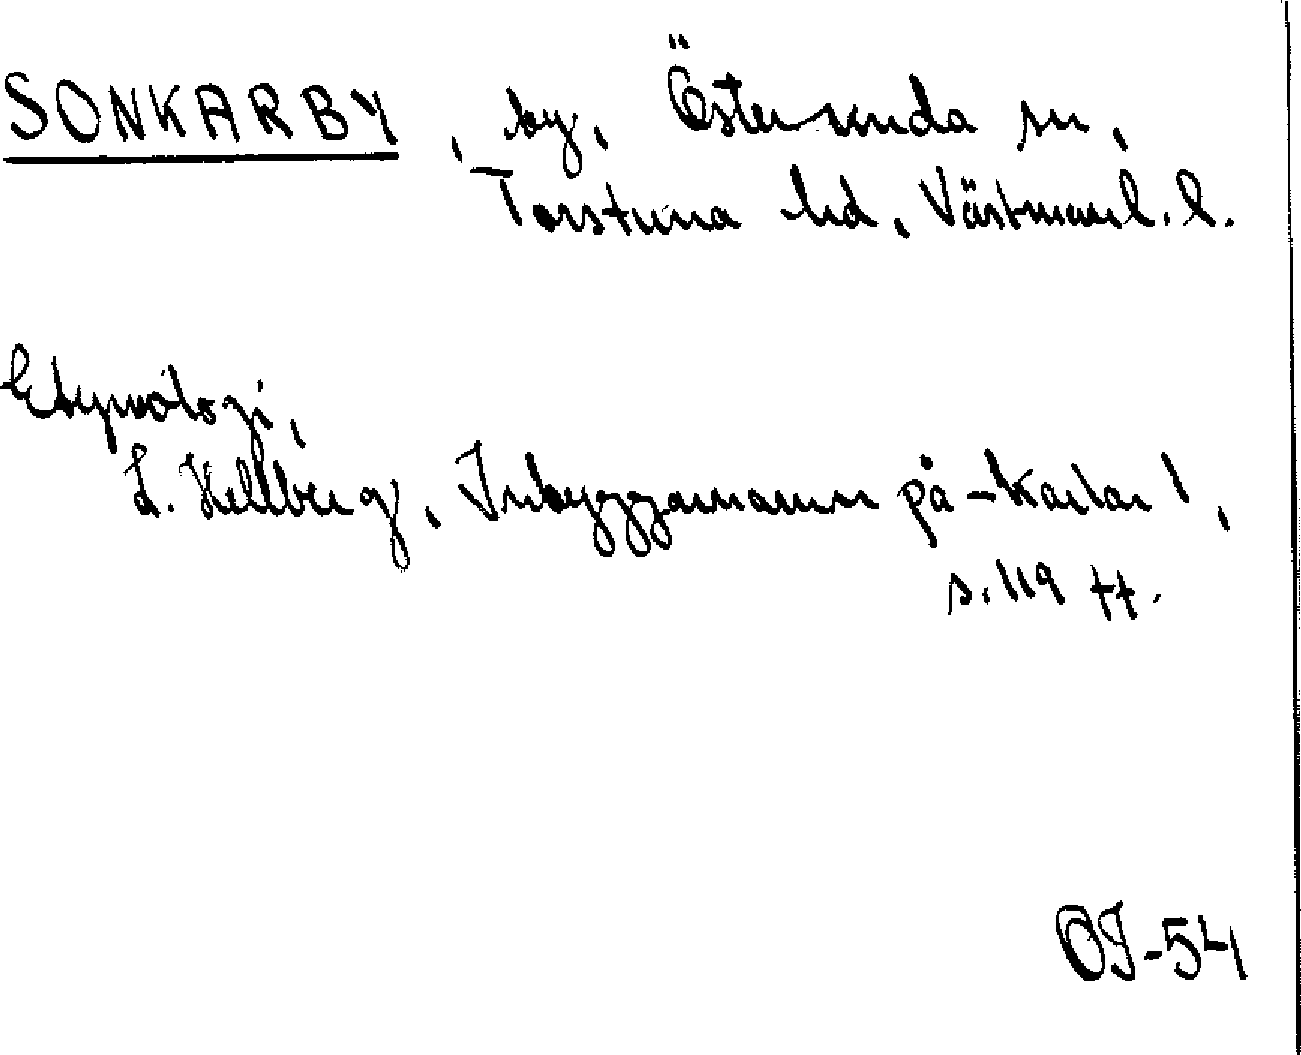 SONKARBY, by, Östersunda sn,
Torstuna hd, Västmanl. l.
Etymologi,
L. Hellberg, Inbyggarnamn på -karlar 1,
s. 119 ff.
OJ-54